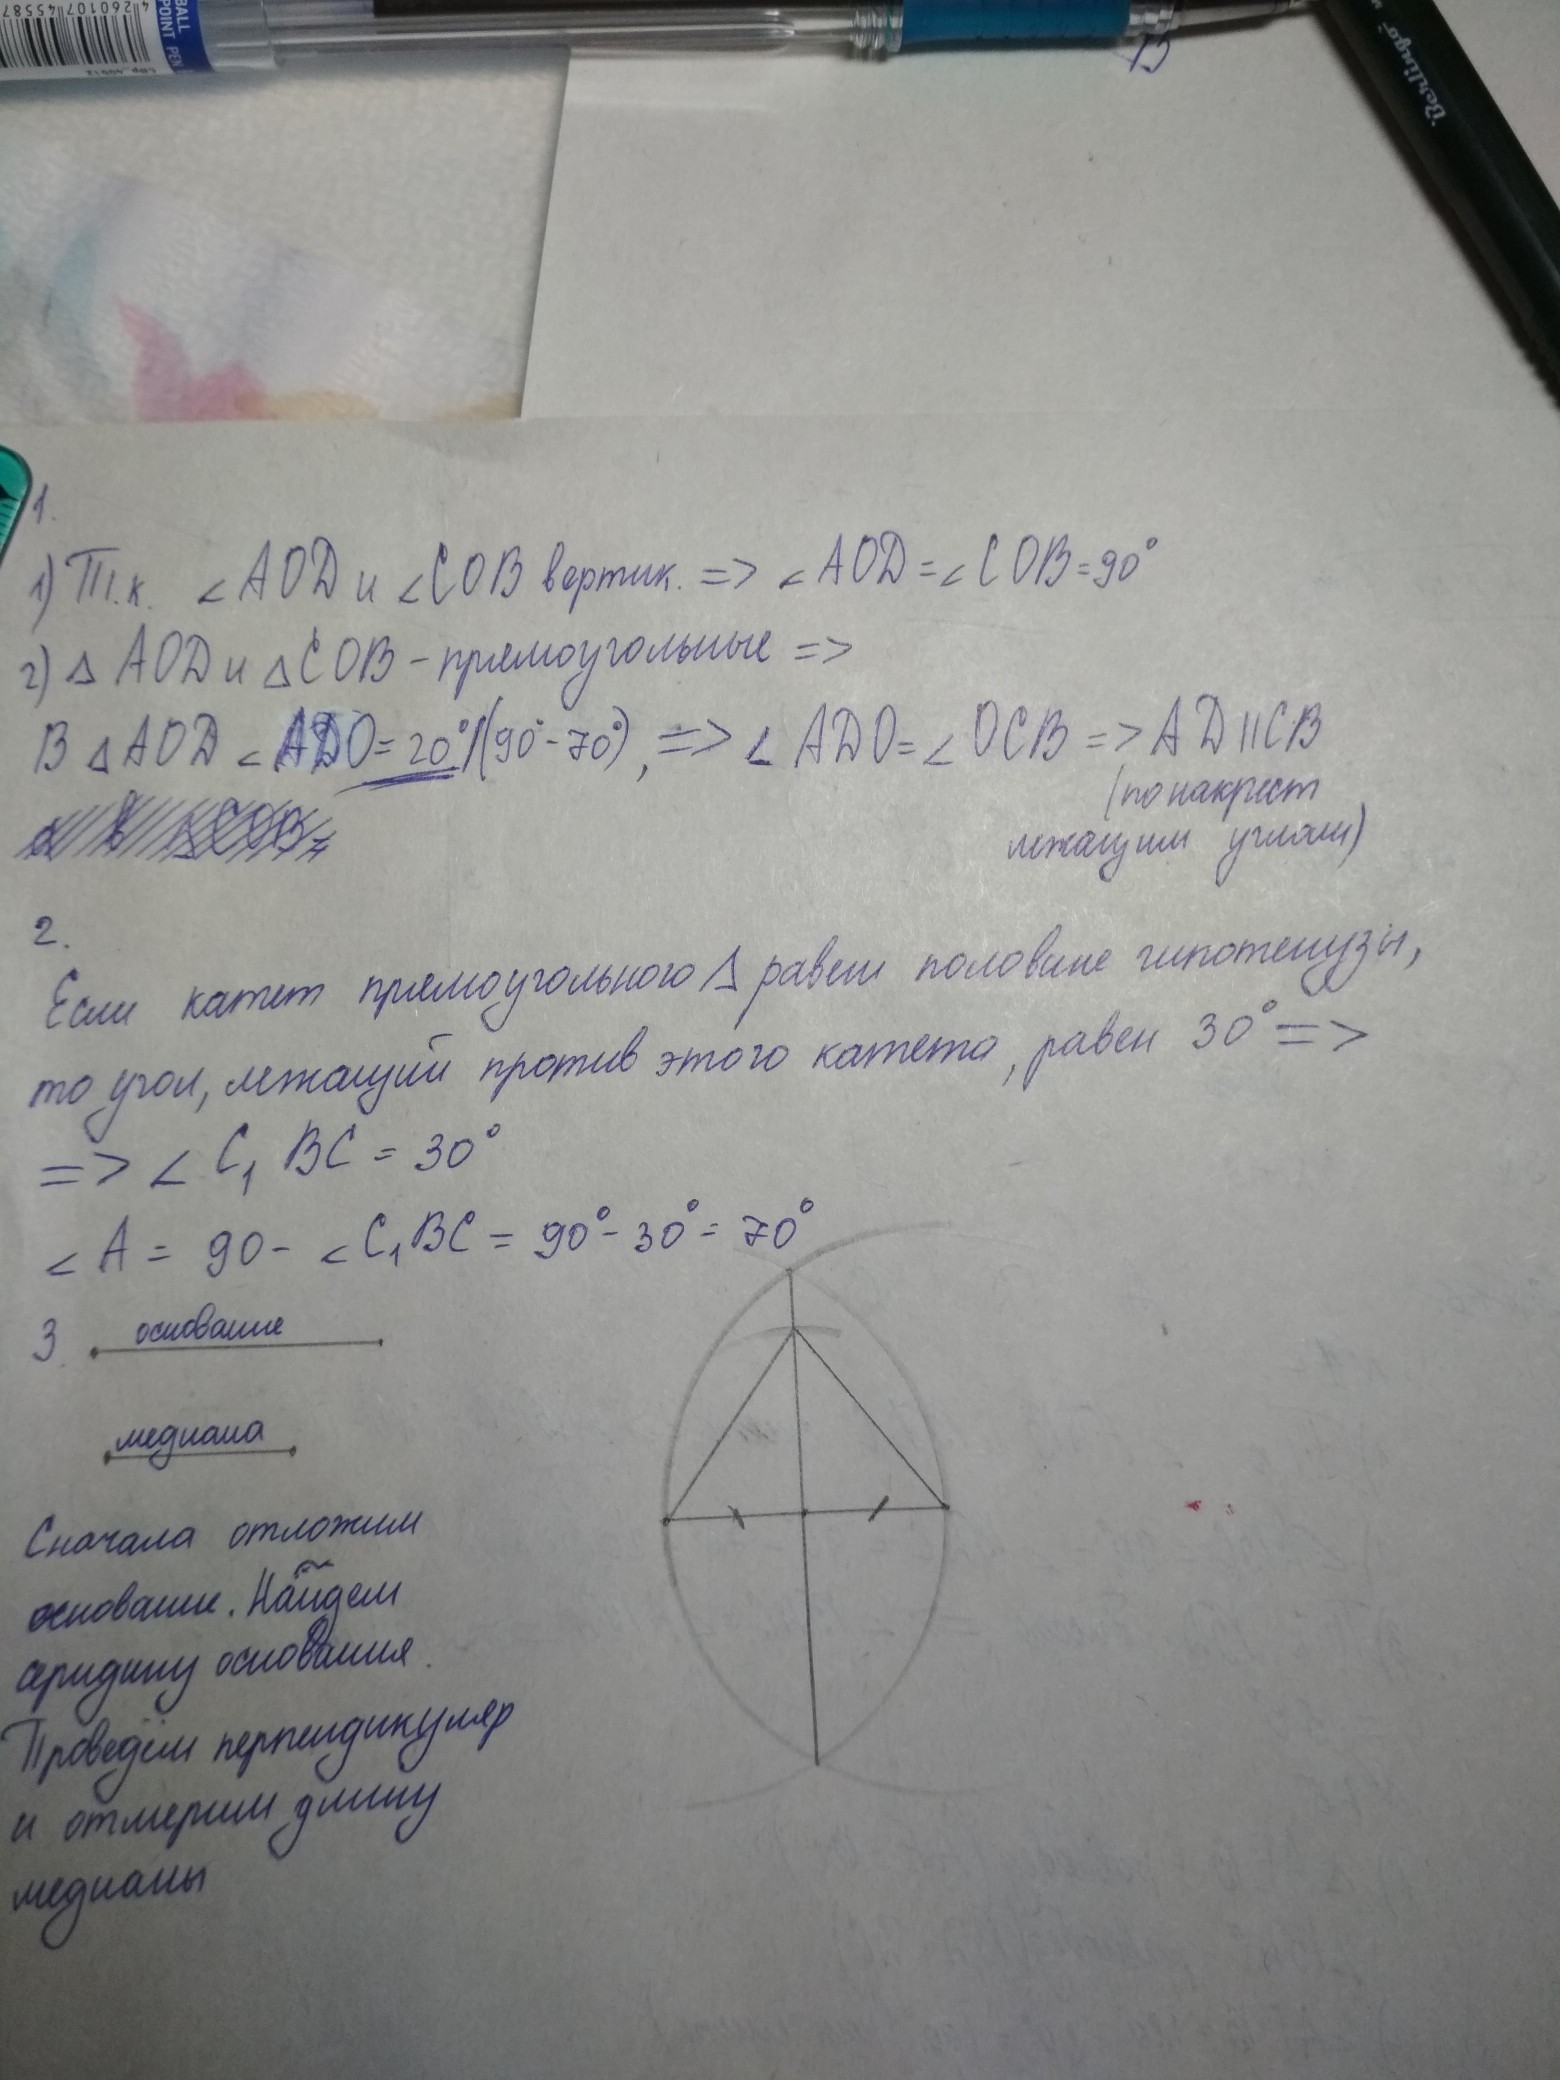 4260107 45587
BALL
POINT PEN
Berlingo
В
1.
1) Т.к. ∠AOD и ∠COB вертик. => ∠AOD = ∠COB = 90°
2) △ AOD и △COB - прямоугольные =>
В △AOD ∠ADO = 20° (90° - 70°), => ∠ ADO = ∠ OCB => AD || CB
(по накрест
лежащим углам)
2.
Если катет прямоугольного △ равен половине гипотенузы,
то угол, лежащий против этого катета, равен 30° =>
=> ∠ C₁ BC = 30°
∠ A = 90 - ∠ C₁BC = 90° - 30° = 70°
3. основание
медиана
Сначала отложим
основание. Найдем
середину основания.
Проведём перпендикуляр
и отмерим длину
медианы